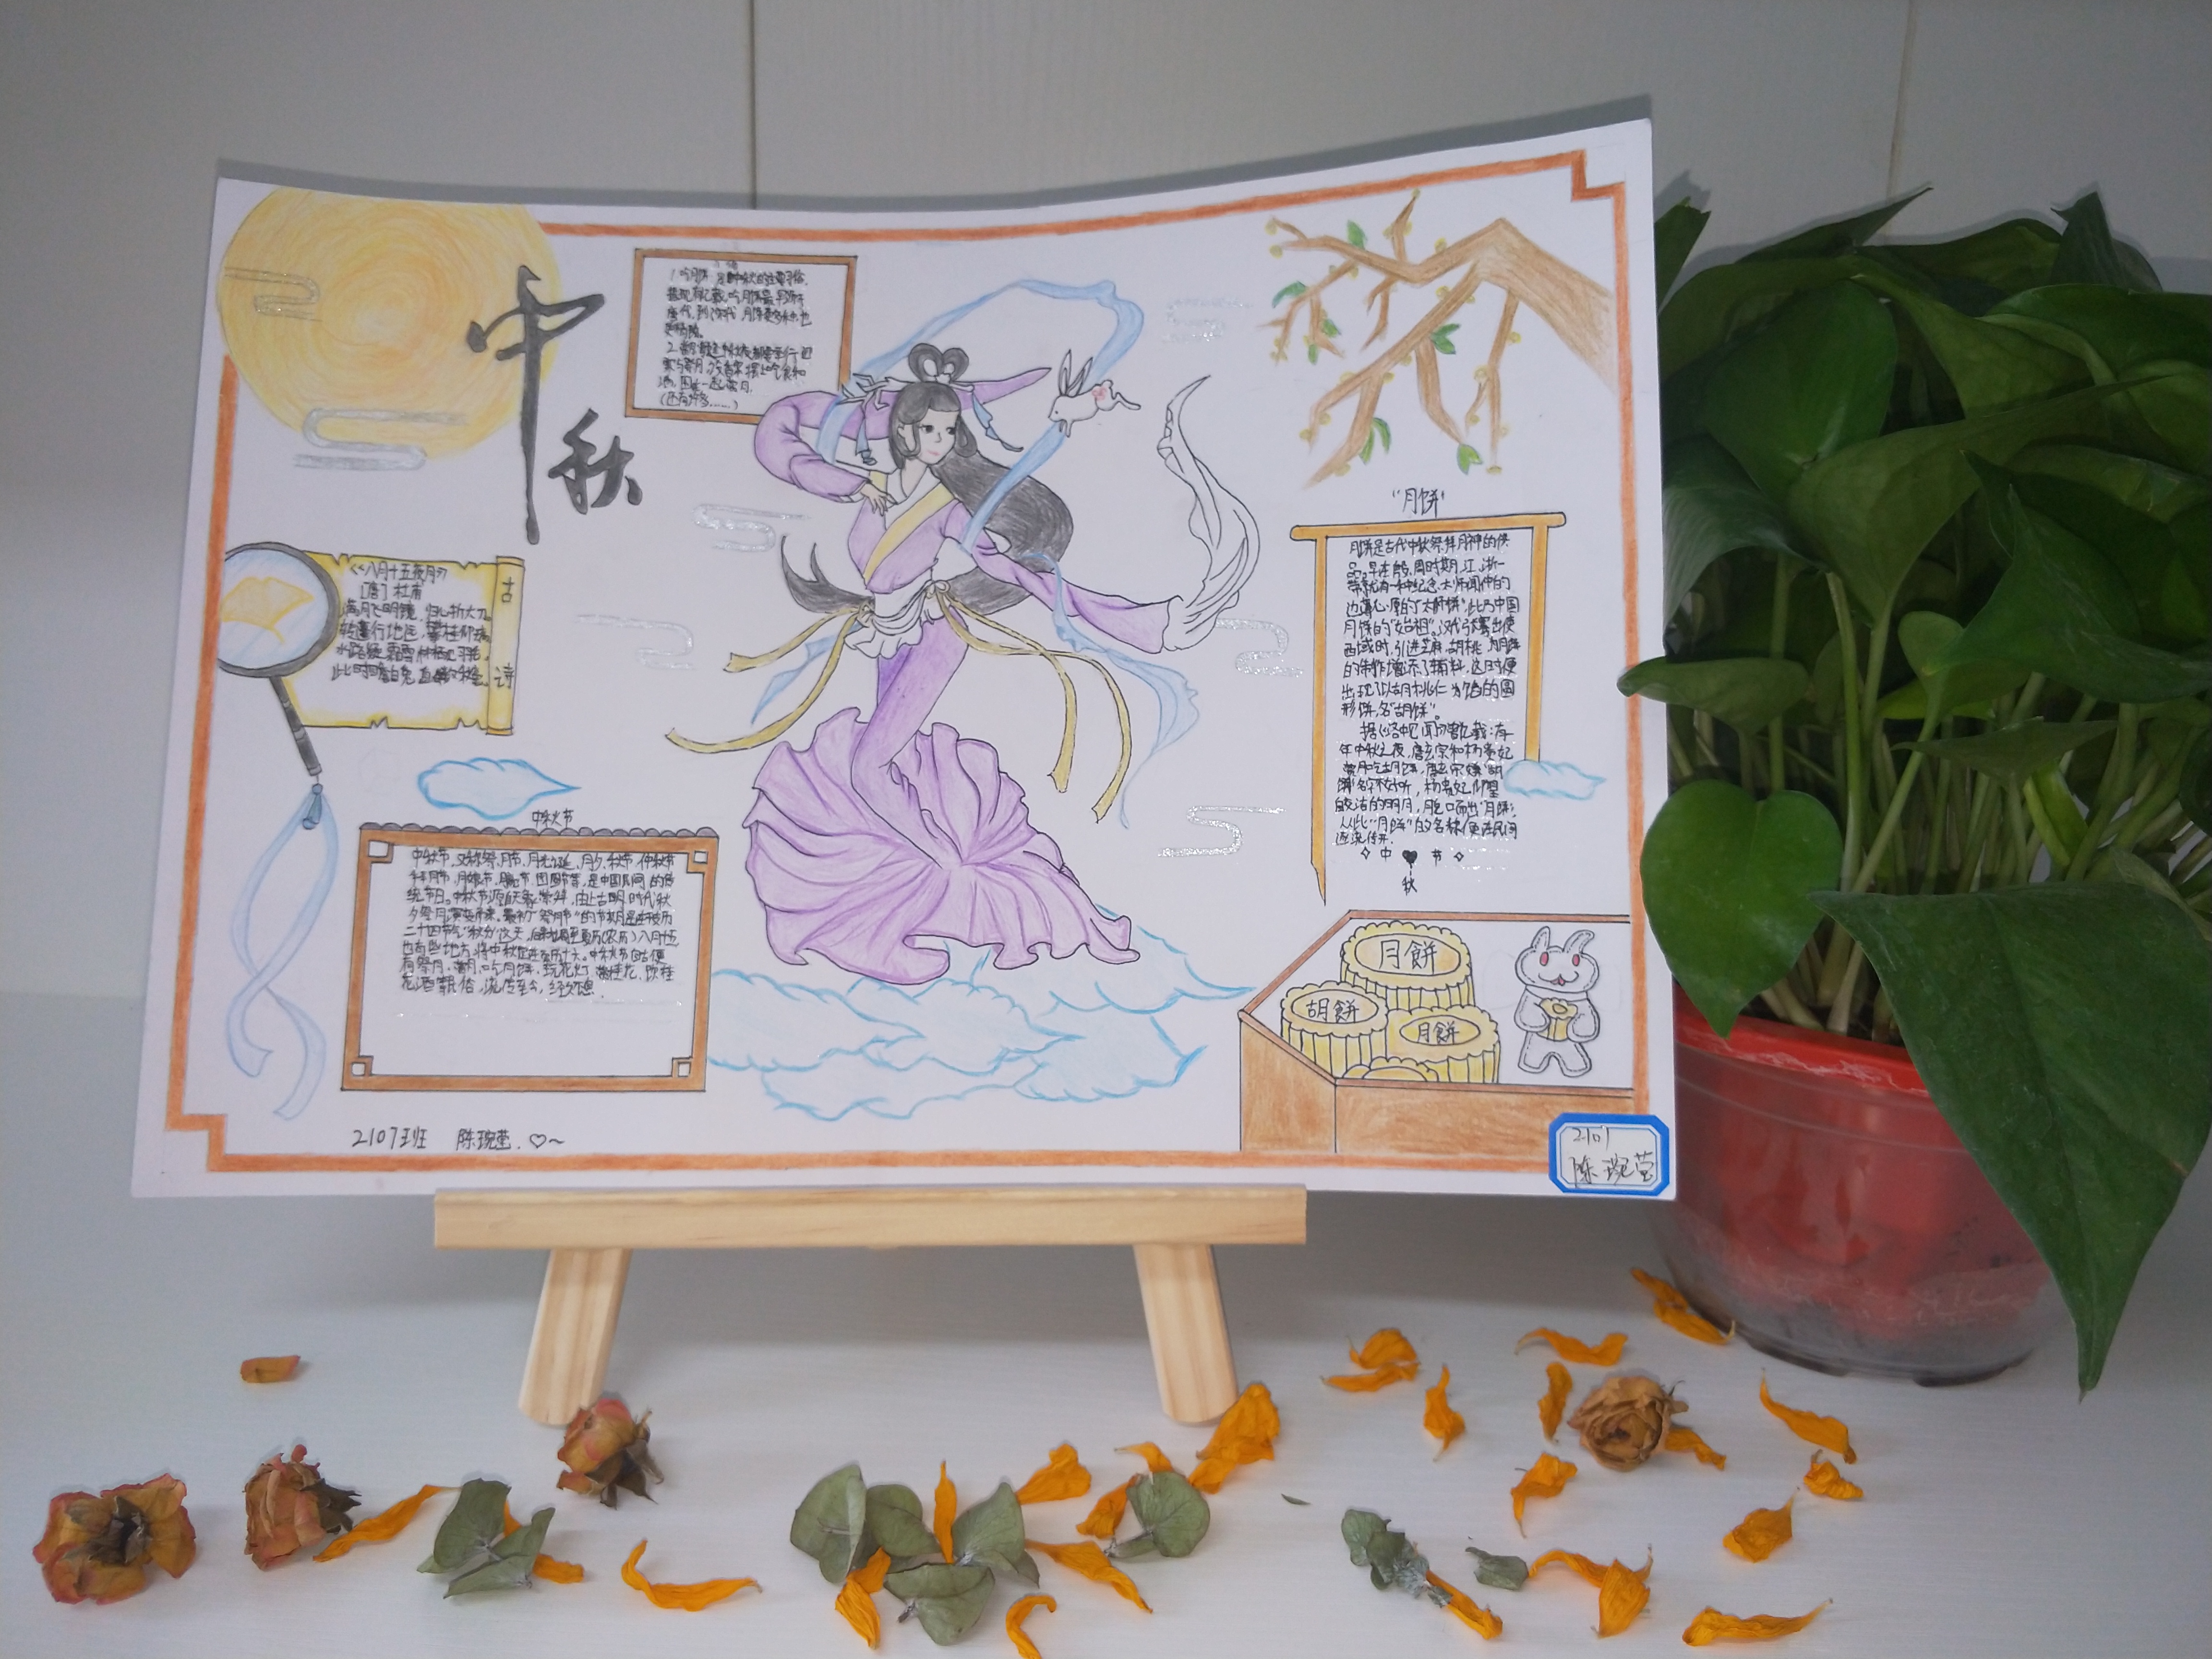 中
秋
1.吃月饼,是中秋的主要习俗,
唐代,到宋代,月饼更多样点也
(还有许多……)
《八月十五夜月》
[唐]杜甫
满月飞明镜,归心折大刀。
转蓬行地远,攀桂仰天高。
水路疑霜雪,林栖见羽毛。
此时瞻白兔,直欲数秋毫。
古
诗
中秋节
中秋节,又称祭月节、月光诞、月夕、秋节、仲秋节、
拜月节、月娘节、月亮节、团圆节等,是中国民间的传
统节日。中秋节源自天象崇拜,由上古时代秋
夕祭月演变而来。最初"祭月节"的节期是在干支历
二十四节气"秋分"这天,后来才调至夏历(农历)八月十五
也有些地方将中秋节定在夏历十六。中秋节自古便
有祭月、赏月、吃月饼、玩花灯、赏桂花、饮桂
花酒等民俗,流传至今,经久不息。
"月饼"
月饼是古代中秋祭拜月神的供
品。早在殷、周时期,江、浙一
带就有一种纪念太师闻仲的
边薄心厚的"太师饼",此乃中国
月饼的"始祖"。汉代张骞出使
西域时,引进芝麻、胡桃,为月饼
的制作增添了辅料,这时便
出现了以胡桃仁为馅的圆
形饼,名"胡饼"。
据《洛中见闻》曾记载:有一
年中秋之夜,唐玄宗和杨贵妃
赏月吃胡饼,唐玄宗嫌"胡
饼"名字不好听,杨贵妃仰望
皎洁的明月,脱口而出"月饼",
从此"月饼"的名称便在民间
逐渐传开。
中 节
秋
月餅
胡餅
月餅
2107班 陈琬莹.
2107
陈琬莹